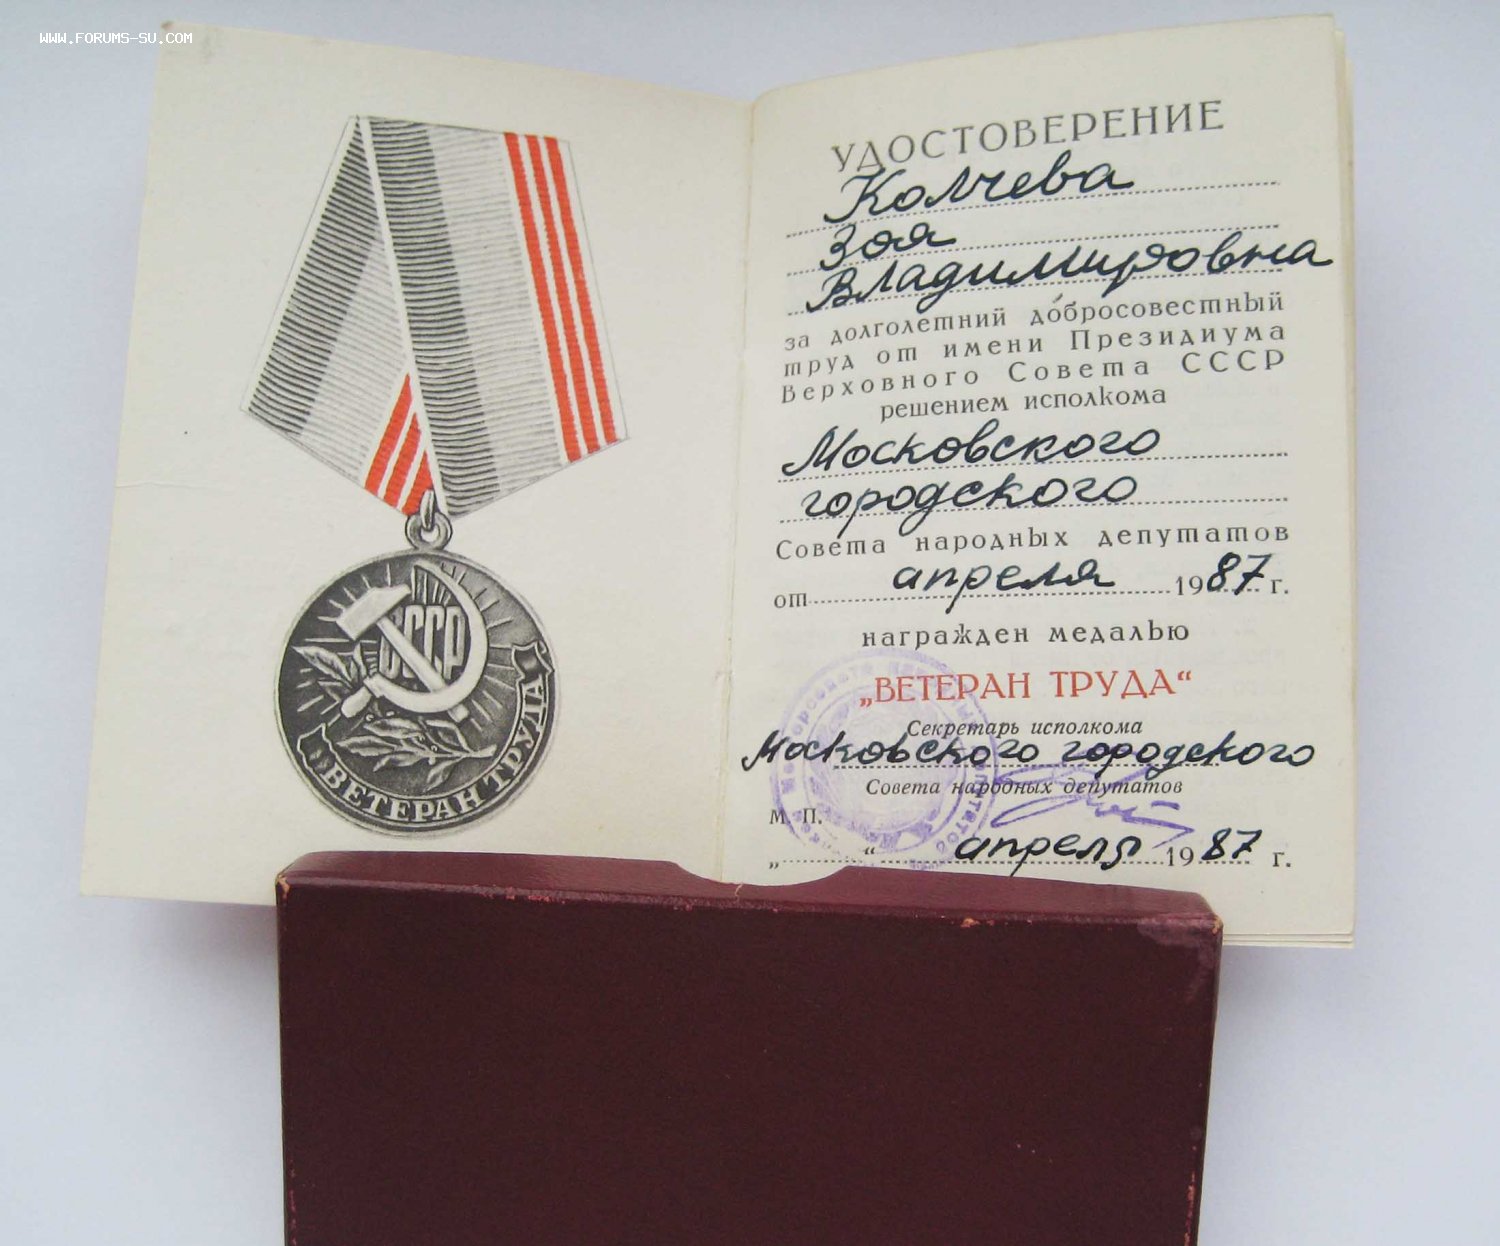 WWW.FORUMS-SU.COM
СССР
ВЕТЕРАН ТРУДА
УДОСТОВЕРЕНИЕ
Колчева
Зоя
Владимировна
за долголетний добросовестный
труд от имени Президиума
Верховного Совета СССР
решением исполкома
Московского
городского
Совета народных депутатов
от апреля 1987 г.
награжден медалью
„ВЕТЕРАН ТРУДА“
Секретарь исполкома
Московского городского
Совета народных депутатов
М. П.
„ “ апреля 1987 г.